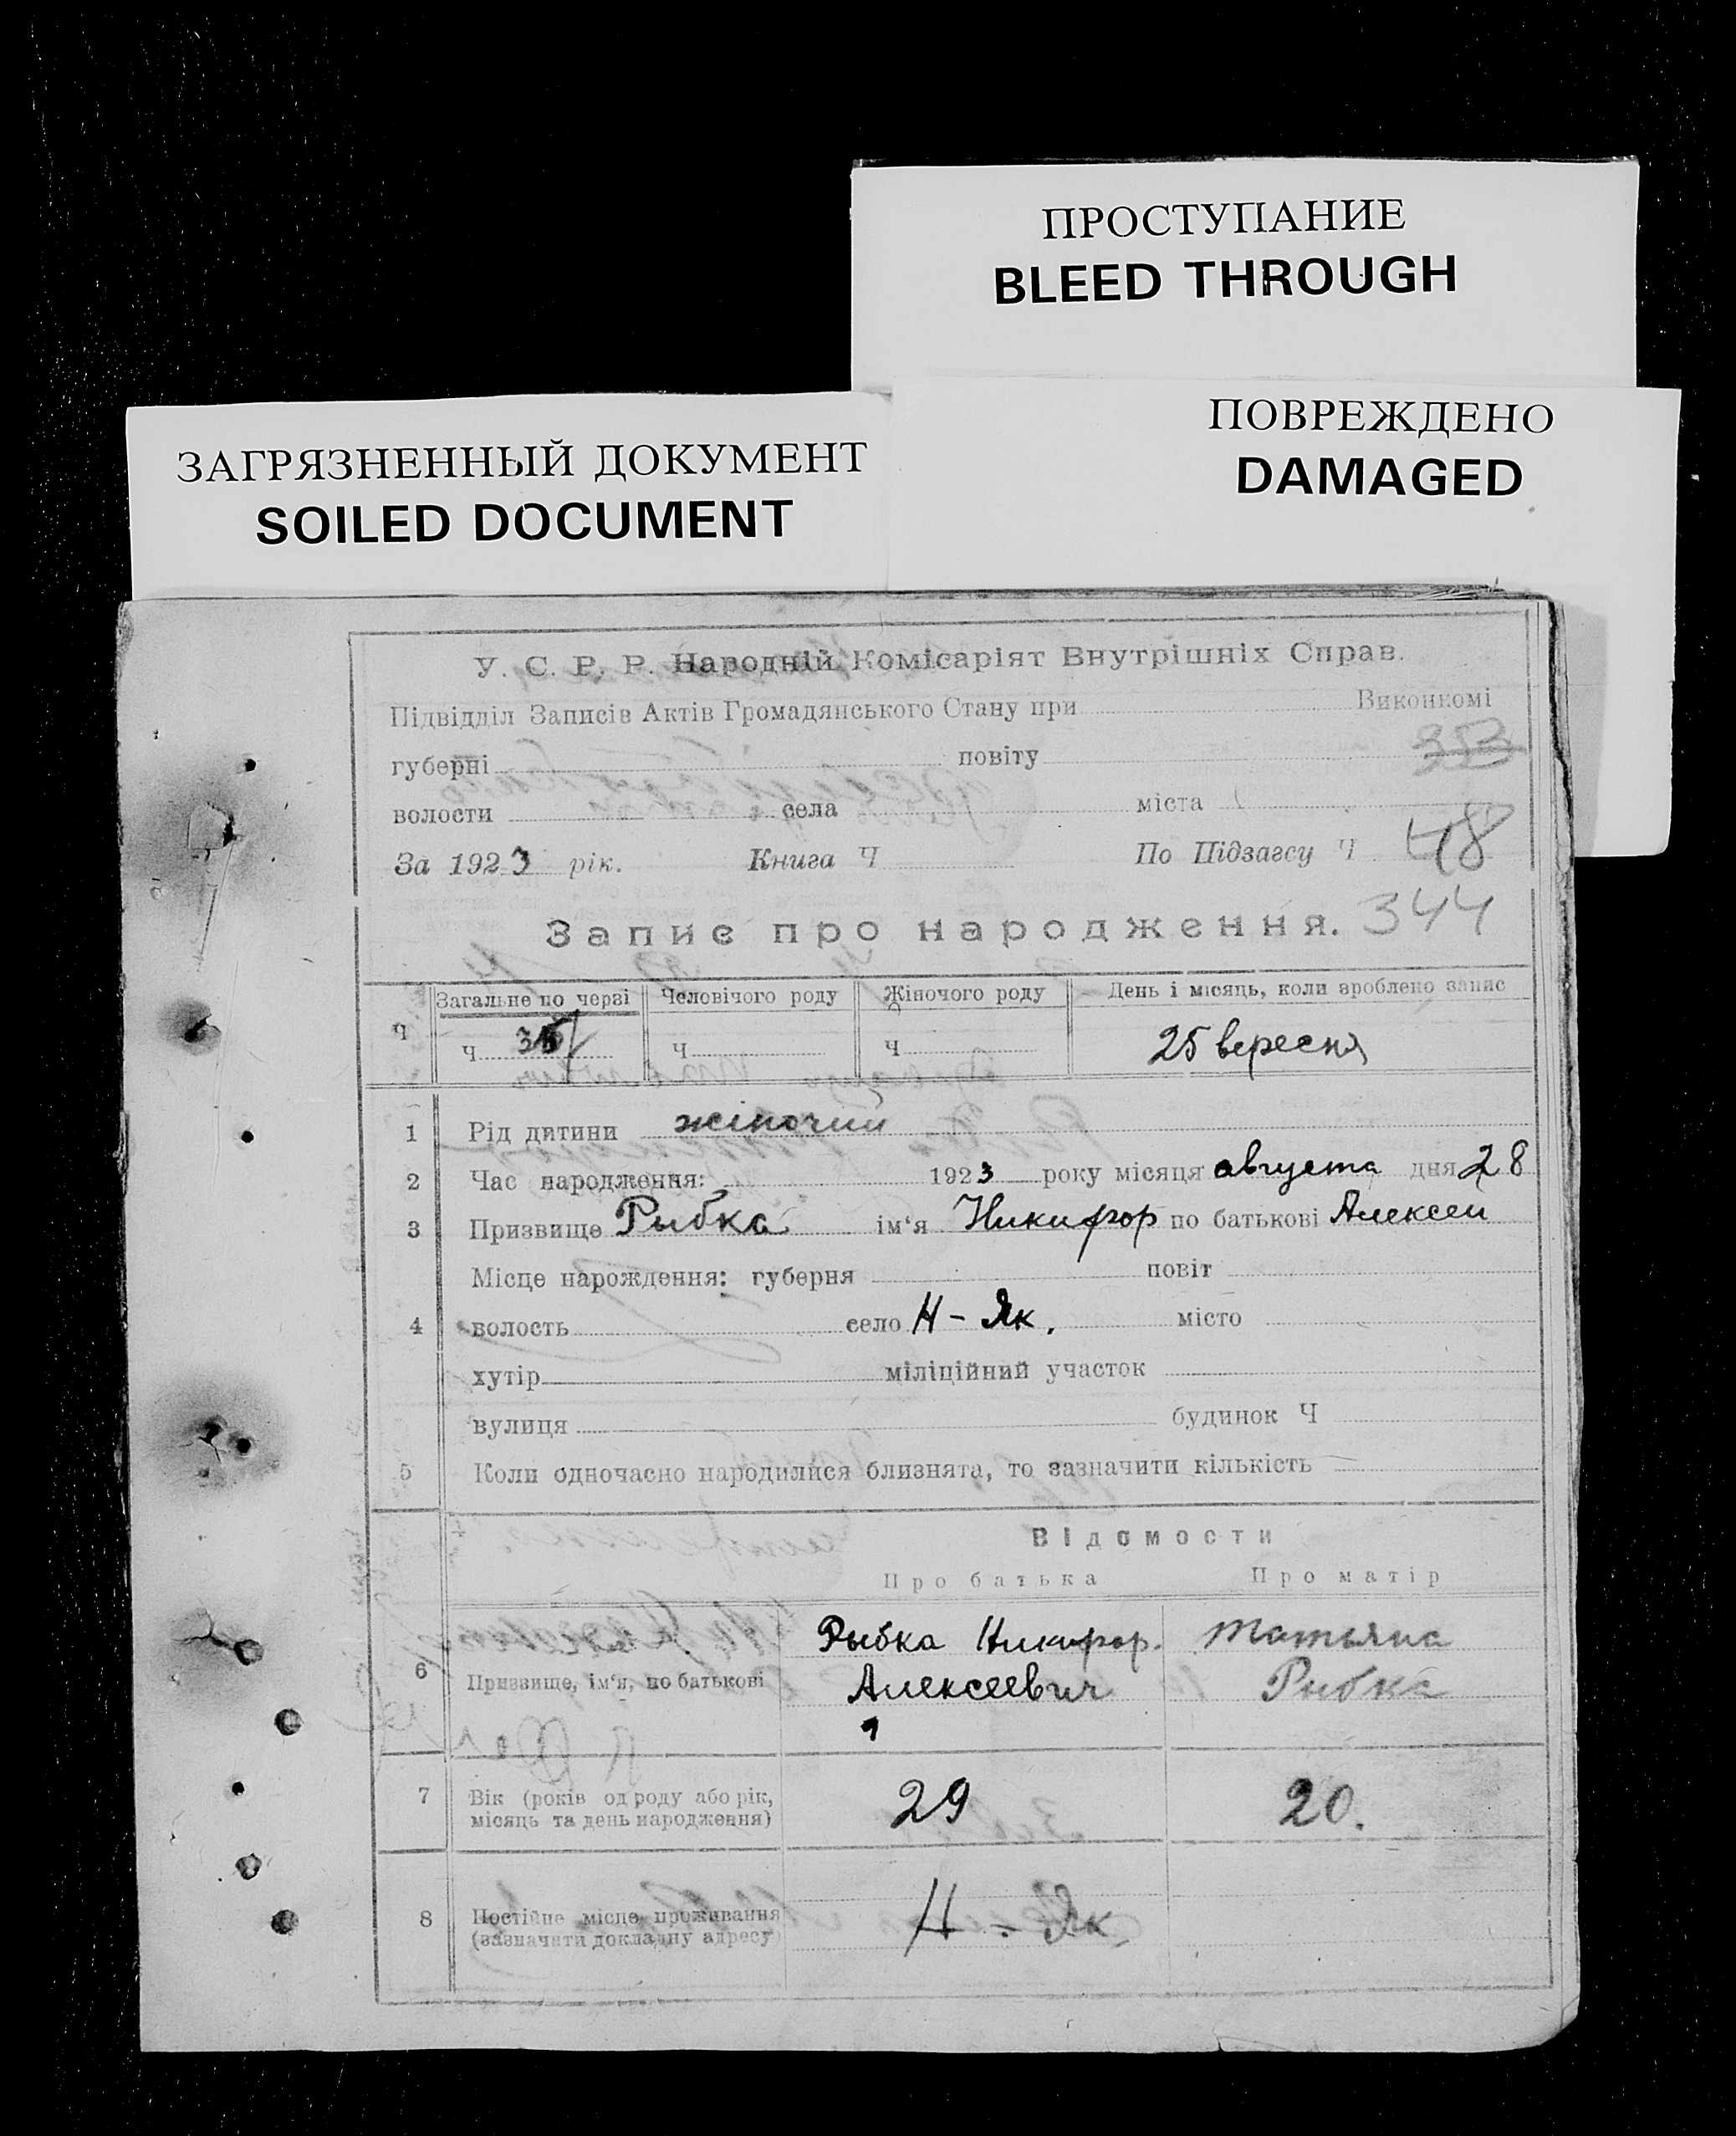 ПРОСТУПАНИЕ
BLEED THROUGH
ПОВРЕЖДЕНО
DAMAGED
ЗАГРЯЗНЕННЫЙ ДОКУМЕНТ
SOILED DOCUMENT
У. С. Р. Р. Народній Комісаріят Внутрішніх Справ.
Підвідділ Записів Актів Громадянського Стану при Виконкомі
губерні повіту 353
волости села міста
За 1923 рік. Книга Ч По Підзагсу Ч 48
Запис про народження. 344
Ч Загальне по черзі Человічого роду Жіночого роду День і місяць, коли зроблено запис
Ч Ч Ч 25 вересня
1 Рід дитини жіночий
2 Час народження: 1923 року місяця августа дня 28
3 Призвище Рыбка ім'я Никифор по батькові Алексеи
Місце нарождення: губерня повіт
4 волость село Н - Як. місто
хутір міліційний участок
вулиця будинок Ч
5 Коли одночасно народилися близнята, то зазначити кількість
Відомости
Про батька Про матір
6 Призвище, ім'я, по батькові Рыбка Никифор. Алексеевич Татьяна Рыбка
7 Вік (років од роду або рік, місяць та день народження) 29 20.
8 Постійне місце проживання (зазначити докладну адресу) Н - Як